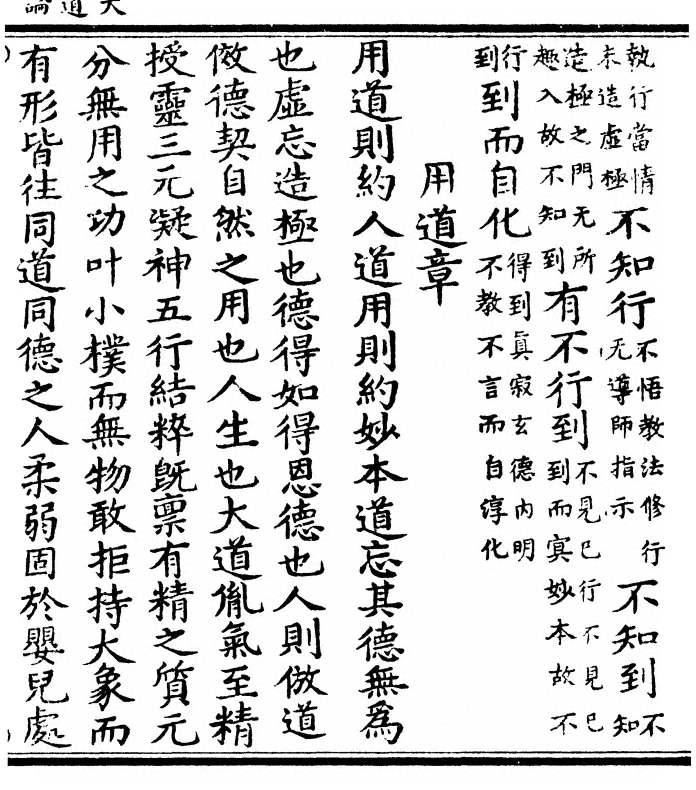 大道論
執行當情未造虛極不知行不悟教法修行无導師指示不知到不知
造極之門无所趣入故不知到有不行到不見已行不見已到而冥妙本故不
行到到而自化得到眞寂玄德內明不教不言而自淳化
用道章
用道則約人道用則約妙本道忘其德無爲
也虛忘造極也德得如得恩德也人則倣道
倣德契自然之用也人生也大道胤氣至精
授靈三元凝神五行結粹旣禀有精之質元
分無用之功叶小樸而無物敢拒持大象而
有形皆往同道同德之人柔弱固於嬰兒處